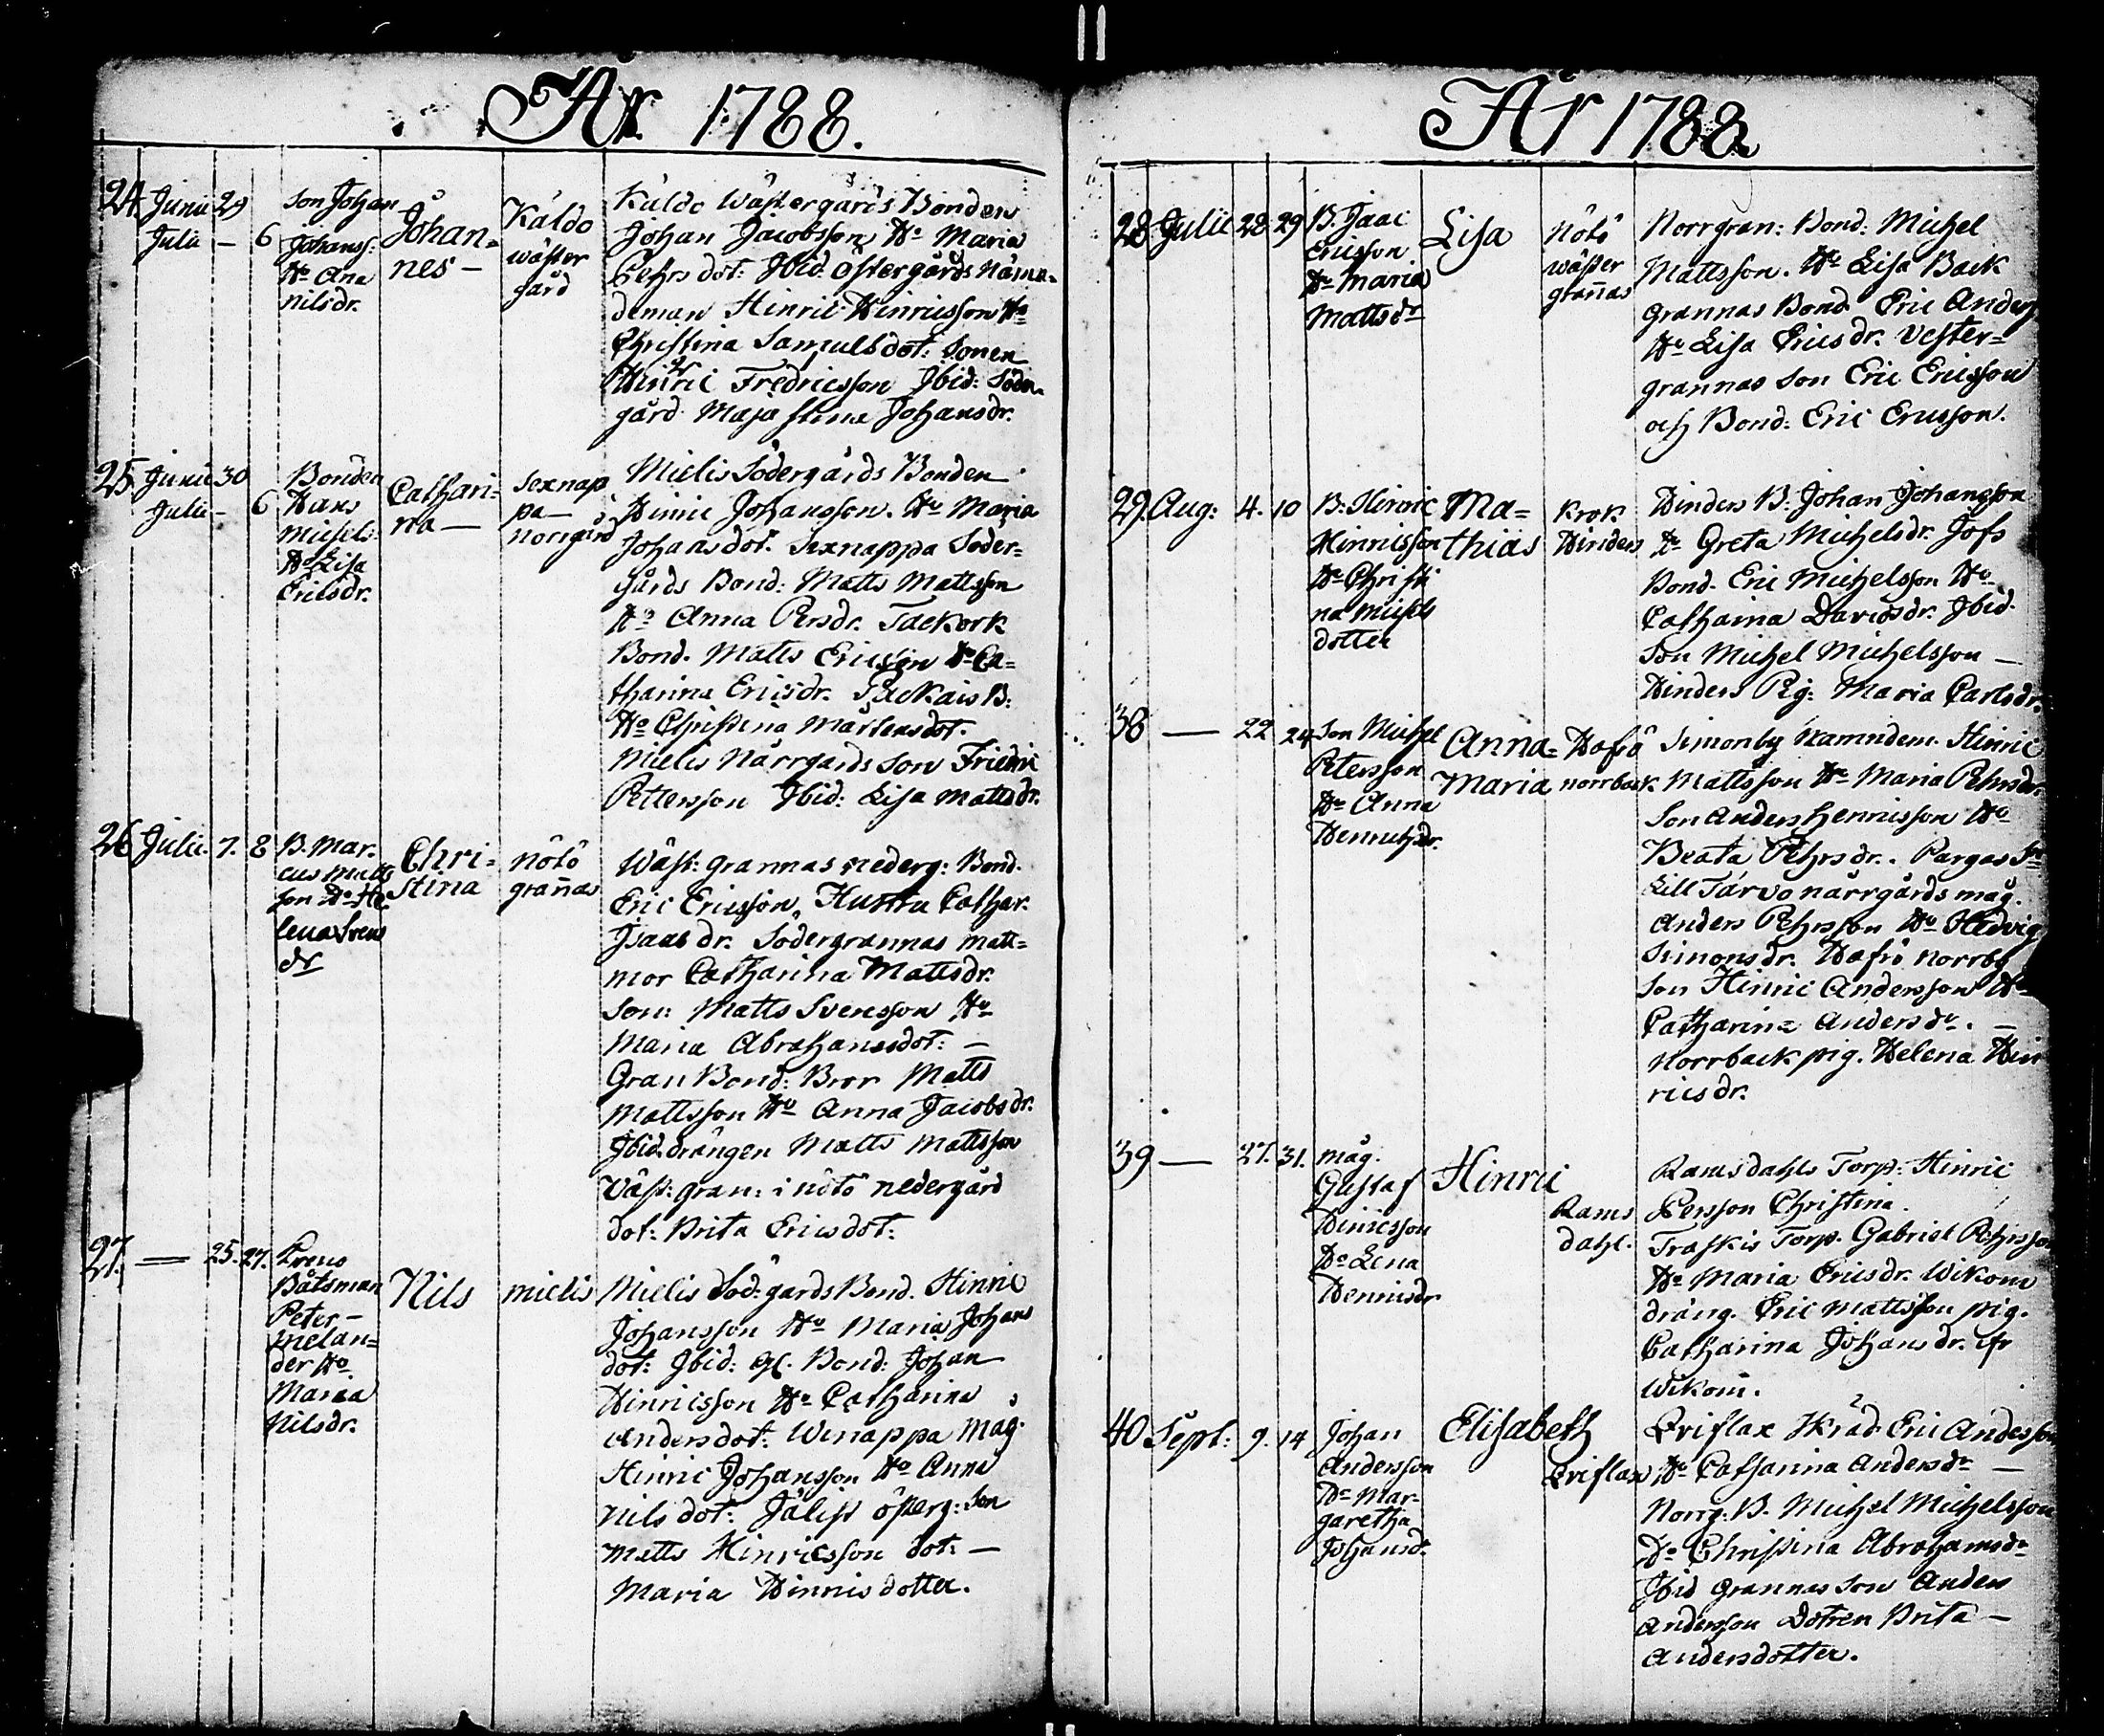 År 1788.
24. Junii 29
Julii — 6
son Johan
Johanss:
Hu Ana
nilsdr.
Johan=
nes —
Kåldo
wäster
gård
Kåldo Wästergårds Bonden
Johan Jacobsson Hu Maria
Pehrsdot: Ibid: östergårds Näm=
deman Hinric Hinricsson Hu
Christina Samuelsdot: Sonen
Hinric Fredricsson Ibid: Söder
gård Maja stina Johansdr.
25. Junii 30
Julii — 6
Bonden
Hans
Michels
Hu Lisa
Ericsdr.
Cathari=
na —
Sexnap
pa —
norrgård
Mielis Södergårds Bonden
Hinric Johansson. Hu Maria
Johansdot. Sexnappa Söder=
gårds Bond: Matts Mattsson
Hu Anna Persdr. Tackork
Bond. Matts Ericsson Hu Ca=
tharina Ericsdr. Packais B.
Hu Christina Mårtensdot.
Mielis Närrgards Son Friedric
Pettersson Ibid: Lisa Mattsdr.
26 Julii. 7. 8
B. Mar.
cus Matts
son Hu He
lena Svens
dr
Chri=
stina
nötö
grannas
Wäst: grannas nederg: Bond.
Eric Ericsson, Hustru Cathar.
Isaacsdr. Södergrannas matt=
mor Catharina Mattsdr.
Son: Matts Svensson Hu
Maria Abrahamsdot: —
Gran Bond: Bror Matts
Mattsson Hu Anna Jacobsdr.
Ibid. drängen Matts Mattsson
Wäst: gran: i nötö nedergård
dot: Brita Ericsdot:
27. — 25. 27.
Båtsman
Peter —
melan=
der Hu
Maria
Nilsdr.
Nils
mielis
Mielis Söd: gards Bond. Hinric
Johansson Hu Maria Johans
dot: Ibid: gl. Bond: Johan
Hinricsson Hu Catharina
Andersdot: Wenappa Måg.
Hinric Johansson Hu Anna
Nilsdot: Jälist österg: Son
Matts Hinricsson dot: —
Maria Hinricsdotter.
År 1788
28 Julii 28 29
B. Isaac
Ericsson
Hu Maria
Mattsdr
Lisa
Nötö
wäster
grannas
Norrgran: Bond: Michel
Mattsson. Hu Lisa Back
grannas Bond Eric Anders
Hu Lisa Ericsdr. Vester=
grannas Son Eric Ericsson
och Bond: Eric Ericsson.
29. Aug: 4. 10
B: Hinric
Hinricsson
Hu Christi
na Michels
dotter
Ma=
thias
Krok
Hinders
Hinders B: Johan Johansson
Hu Greta Michelsdr. Jofs
Bond. Eric Michelsson Hu
Catharina Davidsdr. Ibid.
Son Michel Michelsson —
Hinders Pig: Maria Carlsdr.
38 — 22 24
Son Michel
Petersson
Hu Anna
Henricsdr.
Anna=
Maria
Hafrö
norrback
Simonby Nämndem. Hinric
Mattsson Hu Maria Pehrsdr
Son Anders Henricsson Hu
Beata Pehrsdr. Pargas Sn
Lill Tärvo närrgårds måg.
Anders Pehrsson Hu Hedvig
Simonsdr. Hafrö Norrby
Son Hinric Andersson Hu
Catharina Andersdr. —
Norrback pig. Helena Hin
ricsdr.
39 — 27. 31.
måg.
Gustaf
Hinricsson
Hu Lena
Hennisdr
Hinric
Rams
dahl.
Ramsdahls Torp: Hinric
Persson Christina
Traskis Torp. Gabriel Pehrsson
Hu Maria Ericsdr. Wikom
dräng. Eric Mattsson pig.
Catharina Johansdr. fr
Wikom.
40 Sept: 9. 14
Johan
Andersson
Hu Mar=
garetha
Johansdr
Elisabeth
Briflax
Briflax Hkräd. Eric Andersson
Hu Catharina Andersdr —
Norrg: B. Michel Michelsson
Hu Christina Abrahamsdr
Ibid Grannas Son Anders
Andersson Dotren Brita —
Andersdotter.